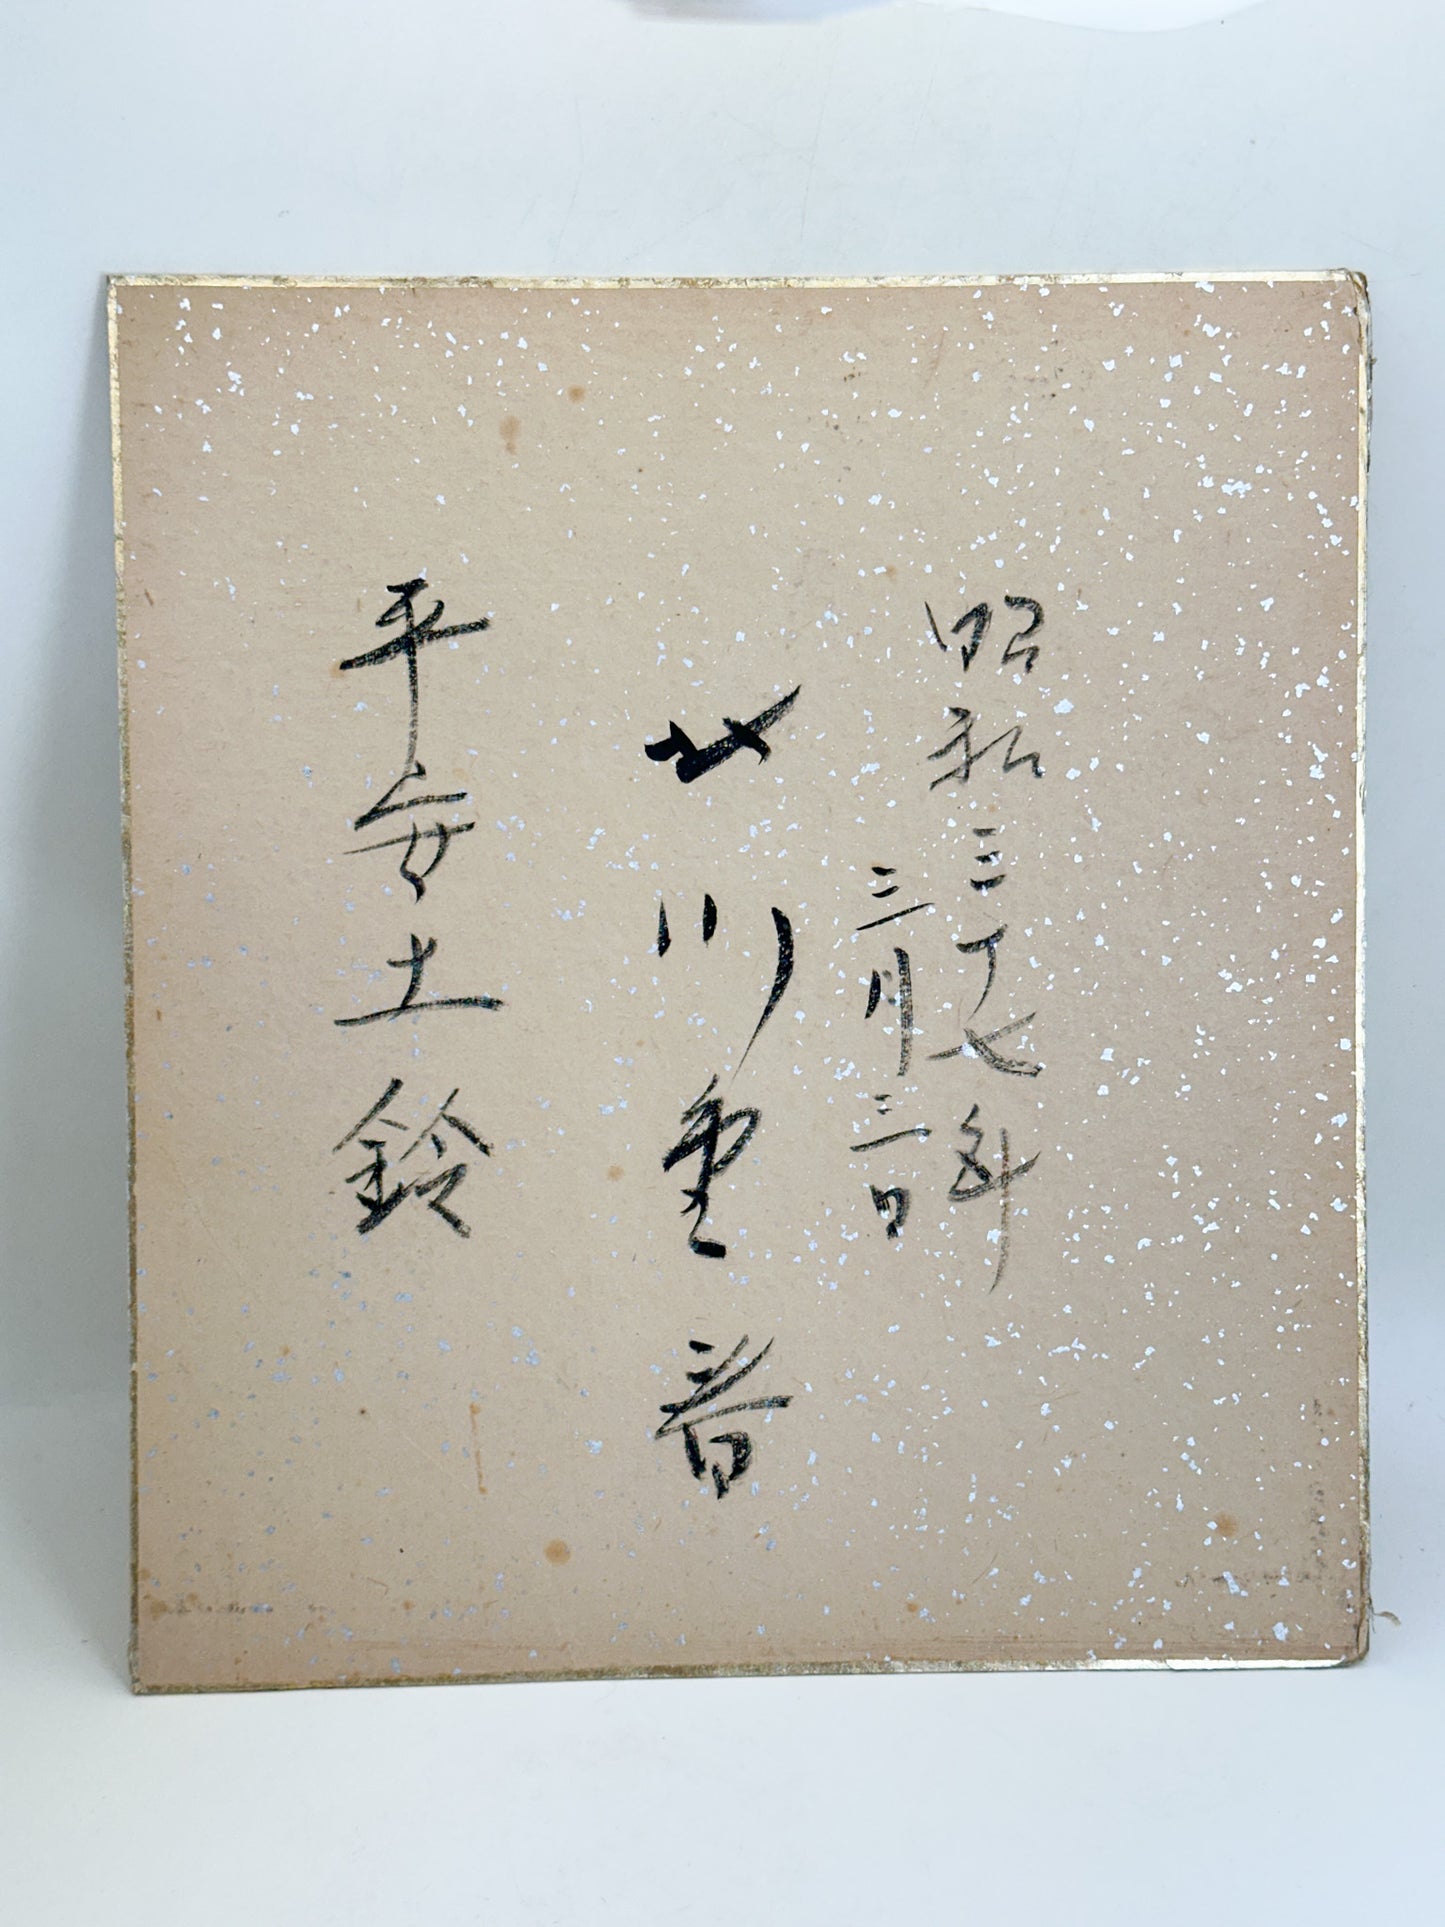 昭和三十七年
三月三日
北川重春
平安土鈴